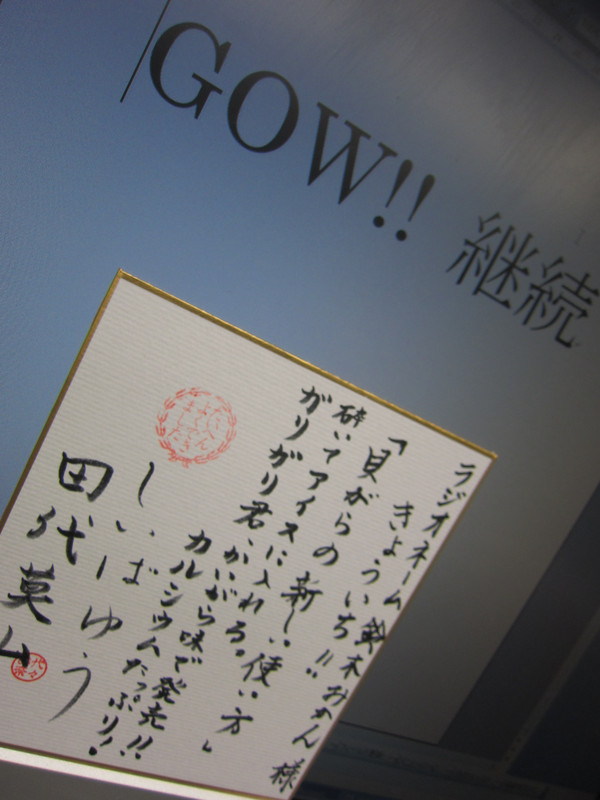 GOW!! 継続
ラジオネーム 鈴木おかん 様
きょういち!!
「貝がらの新しい使い方」
砕いてアイスに入れる。
ガリガリ君、かいがら味で発売!!
カルシウムたっぷり!
しいばゆう
田代莫山